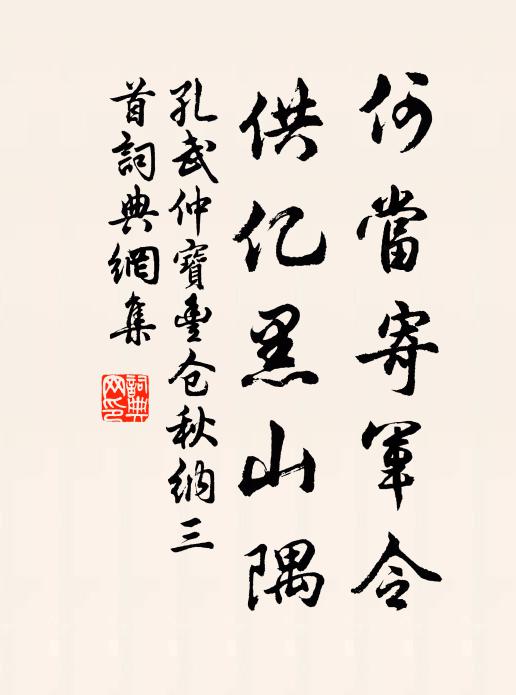 何當寄軍令
供亿黑山隅
孔武仲寶豊仓秋納三
首詞典網集
詞典網印